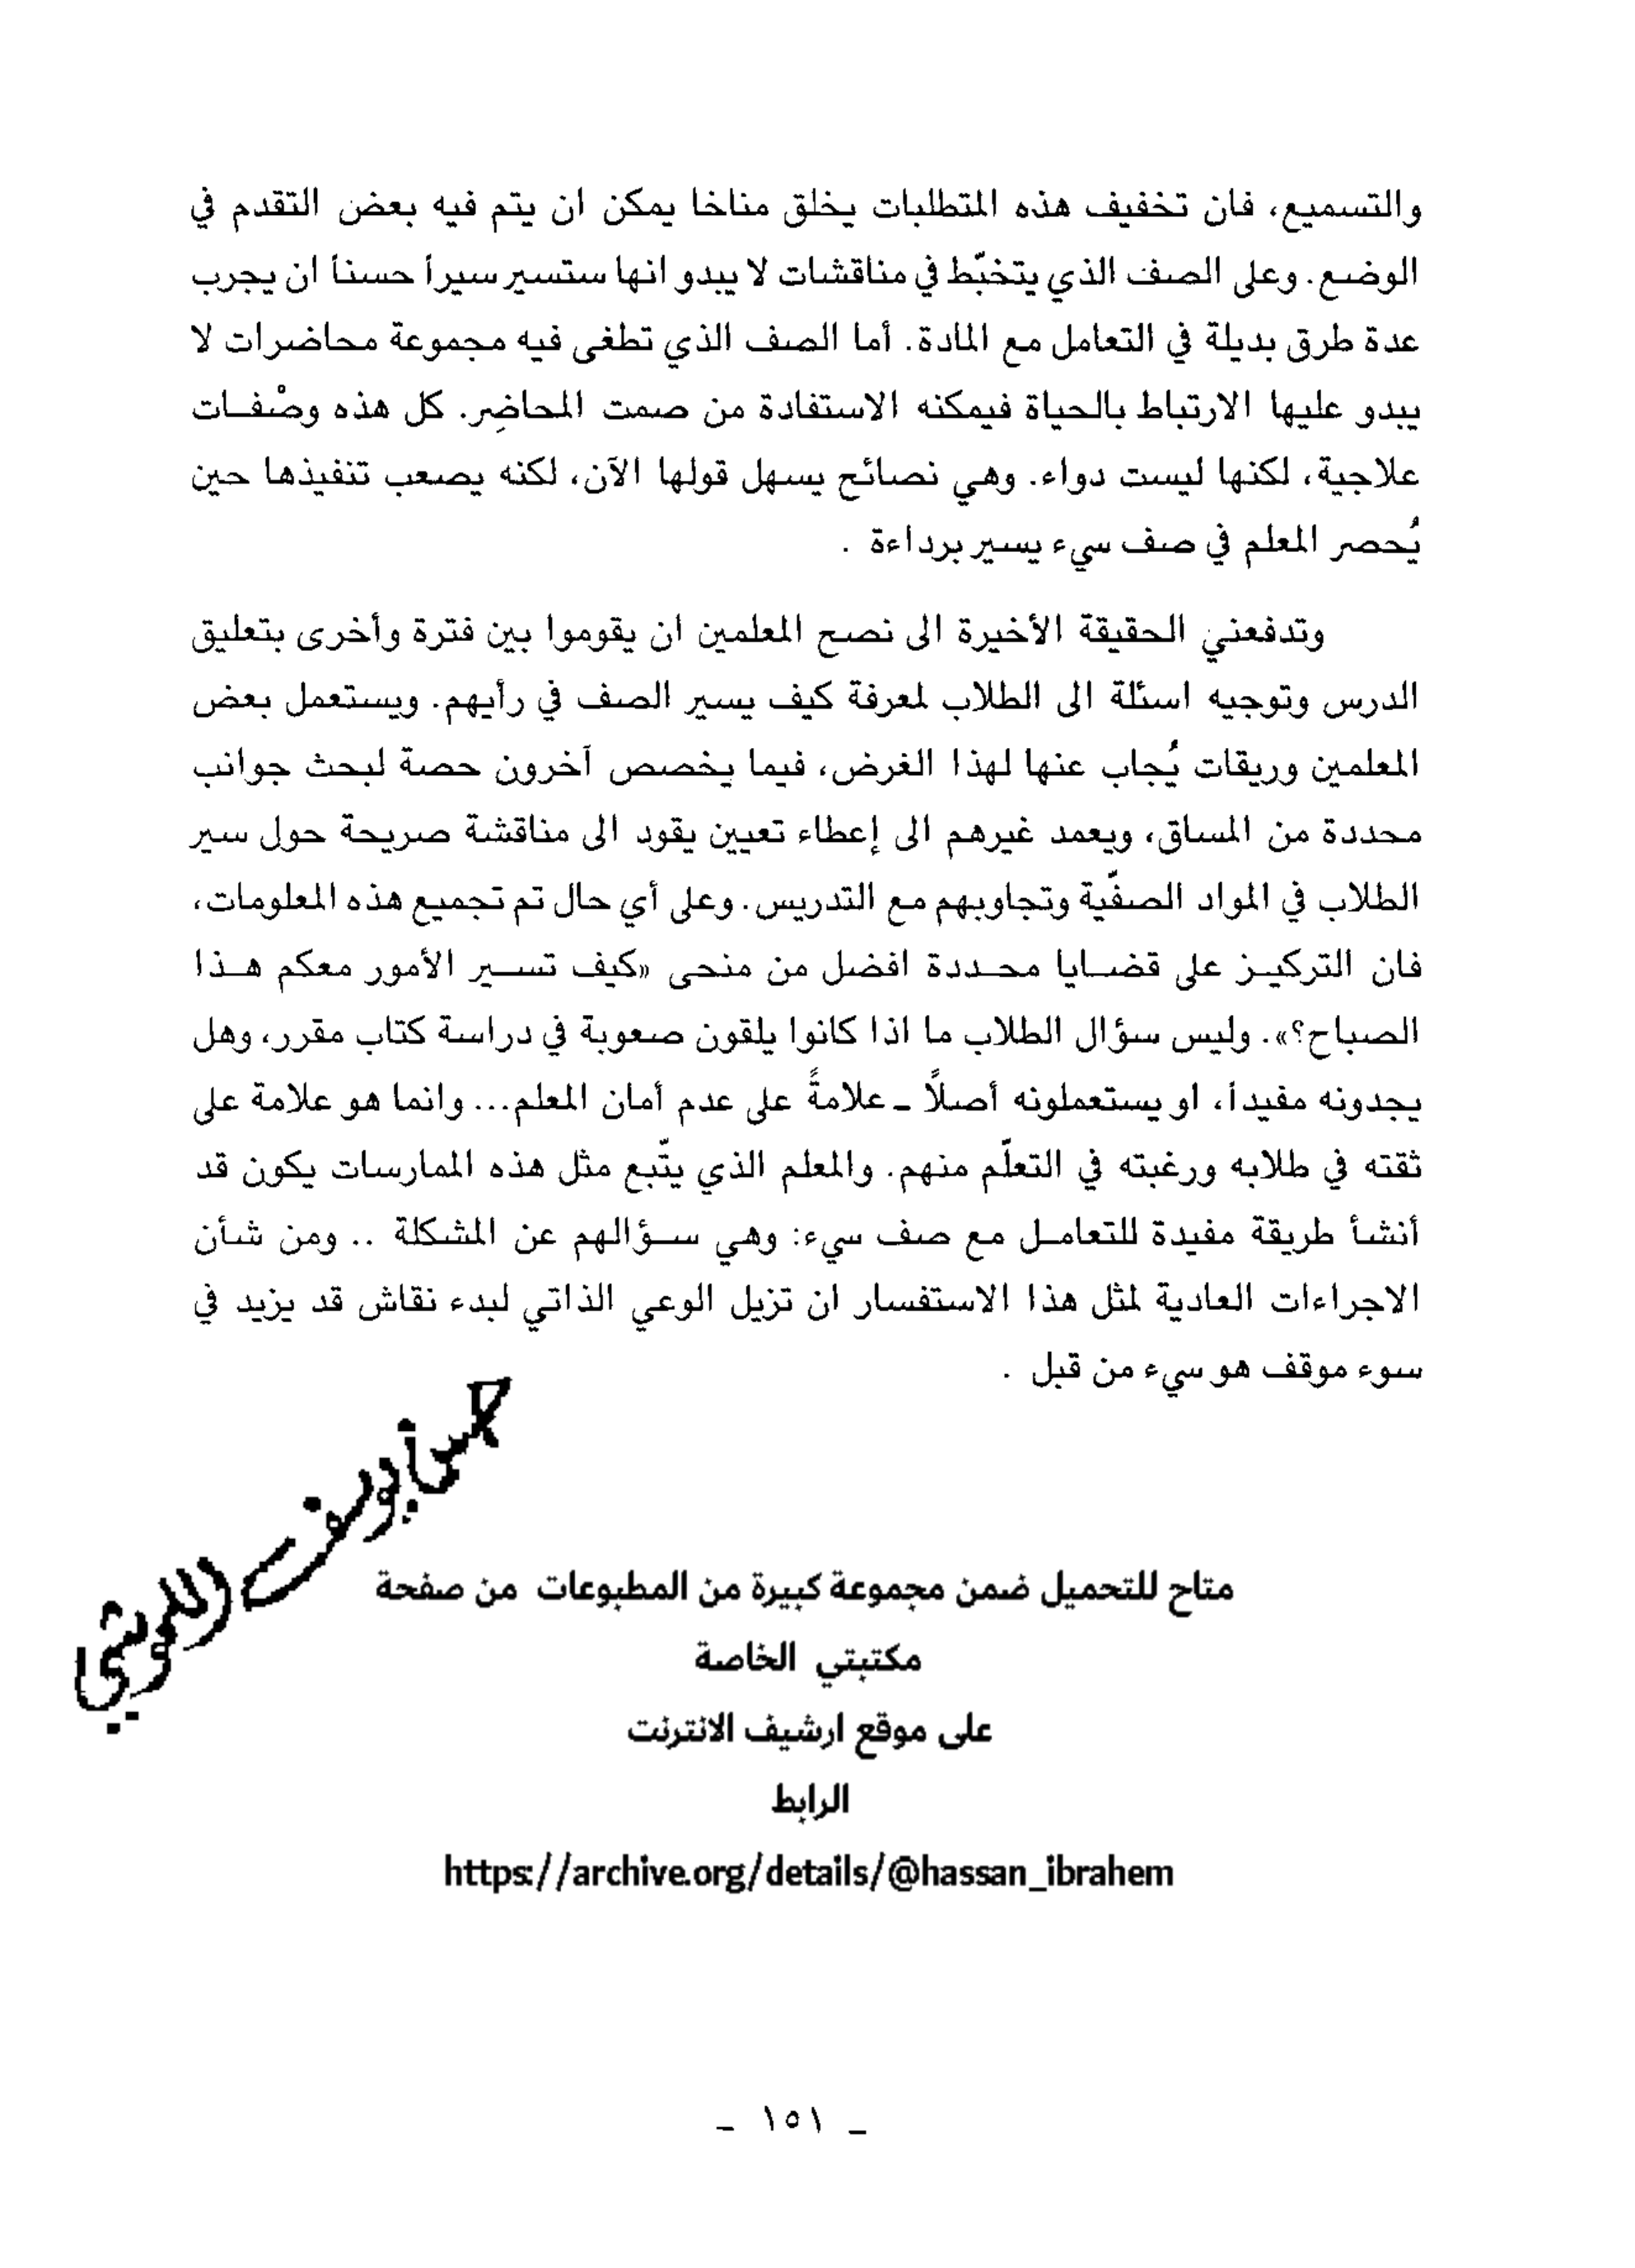 والتسميع، فان تخفيف هذه المتطلبات يخلق مناخا يمكن ان يتم فيه بعض التقدم في
الوضع. وعلى الصف الذي يتخبّط في مناقشات لا يبدو انها ستسير سيراً حسناً ان يجرب
عدة طرق بديلة في التعامل مع المادة. أما الصف الذي تطغى فيه مجموعة محاضرات لا
يبدو عليها الارتباط بالحياة فيمكنه الاستفادة من صمت المحاضِر. كل هذه وصْفـات
علاجية، لكنها ليست دواء. وهي نصائح يسهل قولها الآن، لكنه يصعب تنفيذها حين
يُحصر المعلم في صف سيء يسير برداءة .
وتدفعني الحقيقة الأخيرة الى نصح المعلمين ان يقوموا بين فترة وأخرى بتعليق
الدرس وتوجيه اسئلة الى الطلاب لمعرفة كيف يسير الصف في رأيهم. ويستعمل بعض
المعلمين وريقات يُجاب عنها لهذا الغرض، فيما يخصص آخرون حصة لبحث جوانب
محددة من المساق، ويعمد غيرهم الى إعطاء تعيين يقود الى مناقشة صريحة حول سير
الطلاب في المواد الصفّية وتجاوبهم مع التدريس. وعلى أي حال تم تجميع هذه المعلومات،
فان التركيـز على قضـايا محـددة افضل من منحى «كيف تسـير الأمور معكم هـذا
الصباح؟». وليس سؤال الطلاب ما اذا كانوا يلقون صعوبة في دراسة كتاب مقرر، وهل
يجدونه مفيداً، او يستعملونه أصلاً ـ علامةً على عدم أمان المعلم... وانما هو علامة على
ثقته في طلابه ورغبته في التعلّم منهم. والمعلم الذي يتّبع مثل هذه الممارسات يكون قد
أنشأ طريقة مفيدة للتعامـل مع صف سيء: وهي سـؤالهم عن المشكلة .. ومن شأن
الاجراءات العادية لمثل هذا الاستفسار ان تزيل الوعي الذاتي لبدء نقاش قد يزيد في
سوء موقف هو سيء من قبل .
متاح للتحميل ضمن مجموعة كبيرة من المطبوعات من صفحة
مكتبتي الخاصة
على موقع ارشيف الانترنت
الرابط
https://archive.org/details/@hassan_ibrahem
ـ ١٥١ ـ